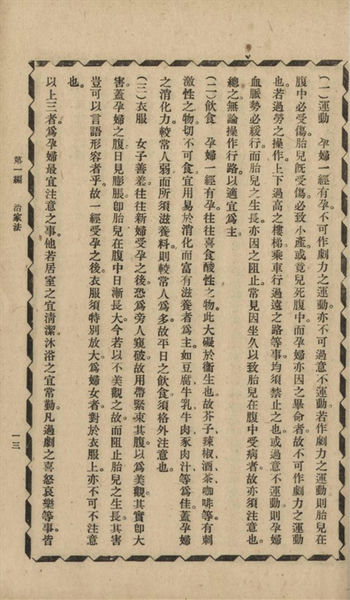 （一）運動　孕婦一經有孕不可作劇力之運動亦不可過意不運動若作劇力之運動則胎兒在
腹中必受傷胎兒旣受傷必致小產或竟兒死腹中而孕婦亦因之畢命者故不可作劇力之運動
也若過勞之操作上下過高之樓梯乘車行過遠之路等事均須禁止之也或過意不運動則孕婦
血脈勢必緩行而胎兒之生長亦因之阻止常見因坐久以致胎兒在腹中受病者故亦須注意也
總之無論操作行路以適宜爲主
（二）飲食　孕婦一經有孕往往喜食酸性之物此大礙於衞生也故芥子辣椒酒茶咖啡等有刺
激性之物切不可食宜用易於消化而富有滋養者爲主如豆腐牛乳牛肉豕肉汁等爲佳蓋孕婦
之消化力較常人弱而所須滋養料則較常人爲多故平日之飲食須格外注意也
（三）衣服　女子善羞往往新婦受孕之後恐爲旁人窺破故用帶緊束其腹以爲美觀其實卽大
害蓋孕婦之腹日見膨脹卽胎兒在腹中日漸長大今若以不美觀之故而阻止胎兒之生長其害
豈可以言語形容者乎故一經受孕之後衣服須特別放大爲婦女者對於衣服上亦不可不注意
也
以上三者爲孕婦最宜注意之事他若居室之宜清潔沐浴之宜常勤凡過劇之喜怒哀樂等事皆
第一編　治家法
一三